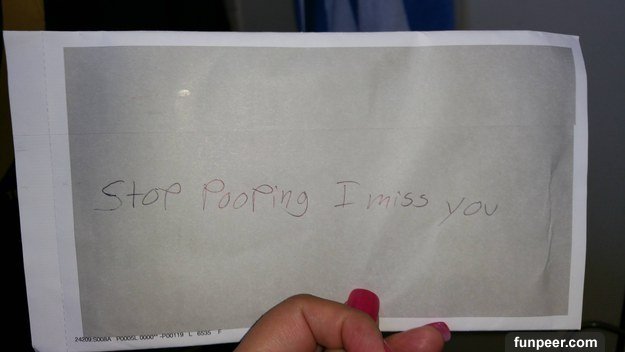 Stop Pooping I miss you
24209.S008A P0005L.0000" -P00119 L 6535 F
funpeer.com